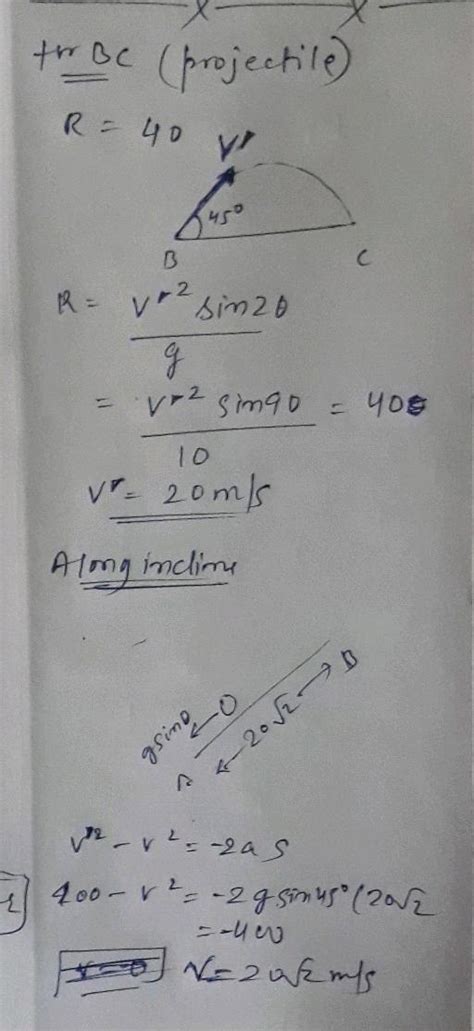 for BC (projectile)
R = 40
V'
45°
B
C
R = V'² sin2θ / g
= V'² sin90 / 10 = 40
V' = 20 m/s
Along incline
B
gsinθ
20√2
A
V'² - V² = -2as
400 - V² = -2g sin45° (20√2
= -400
V = 20√2 m/s